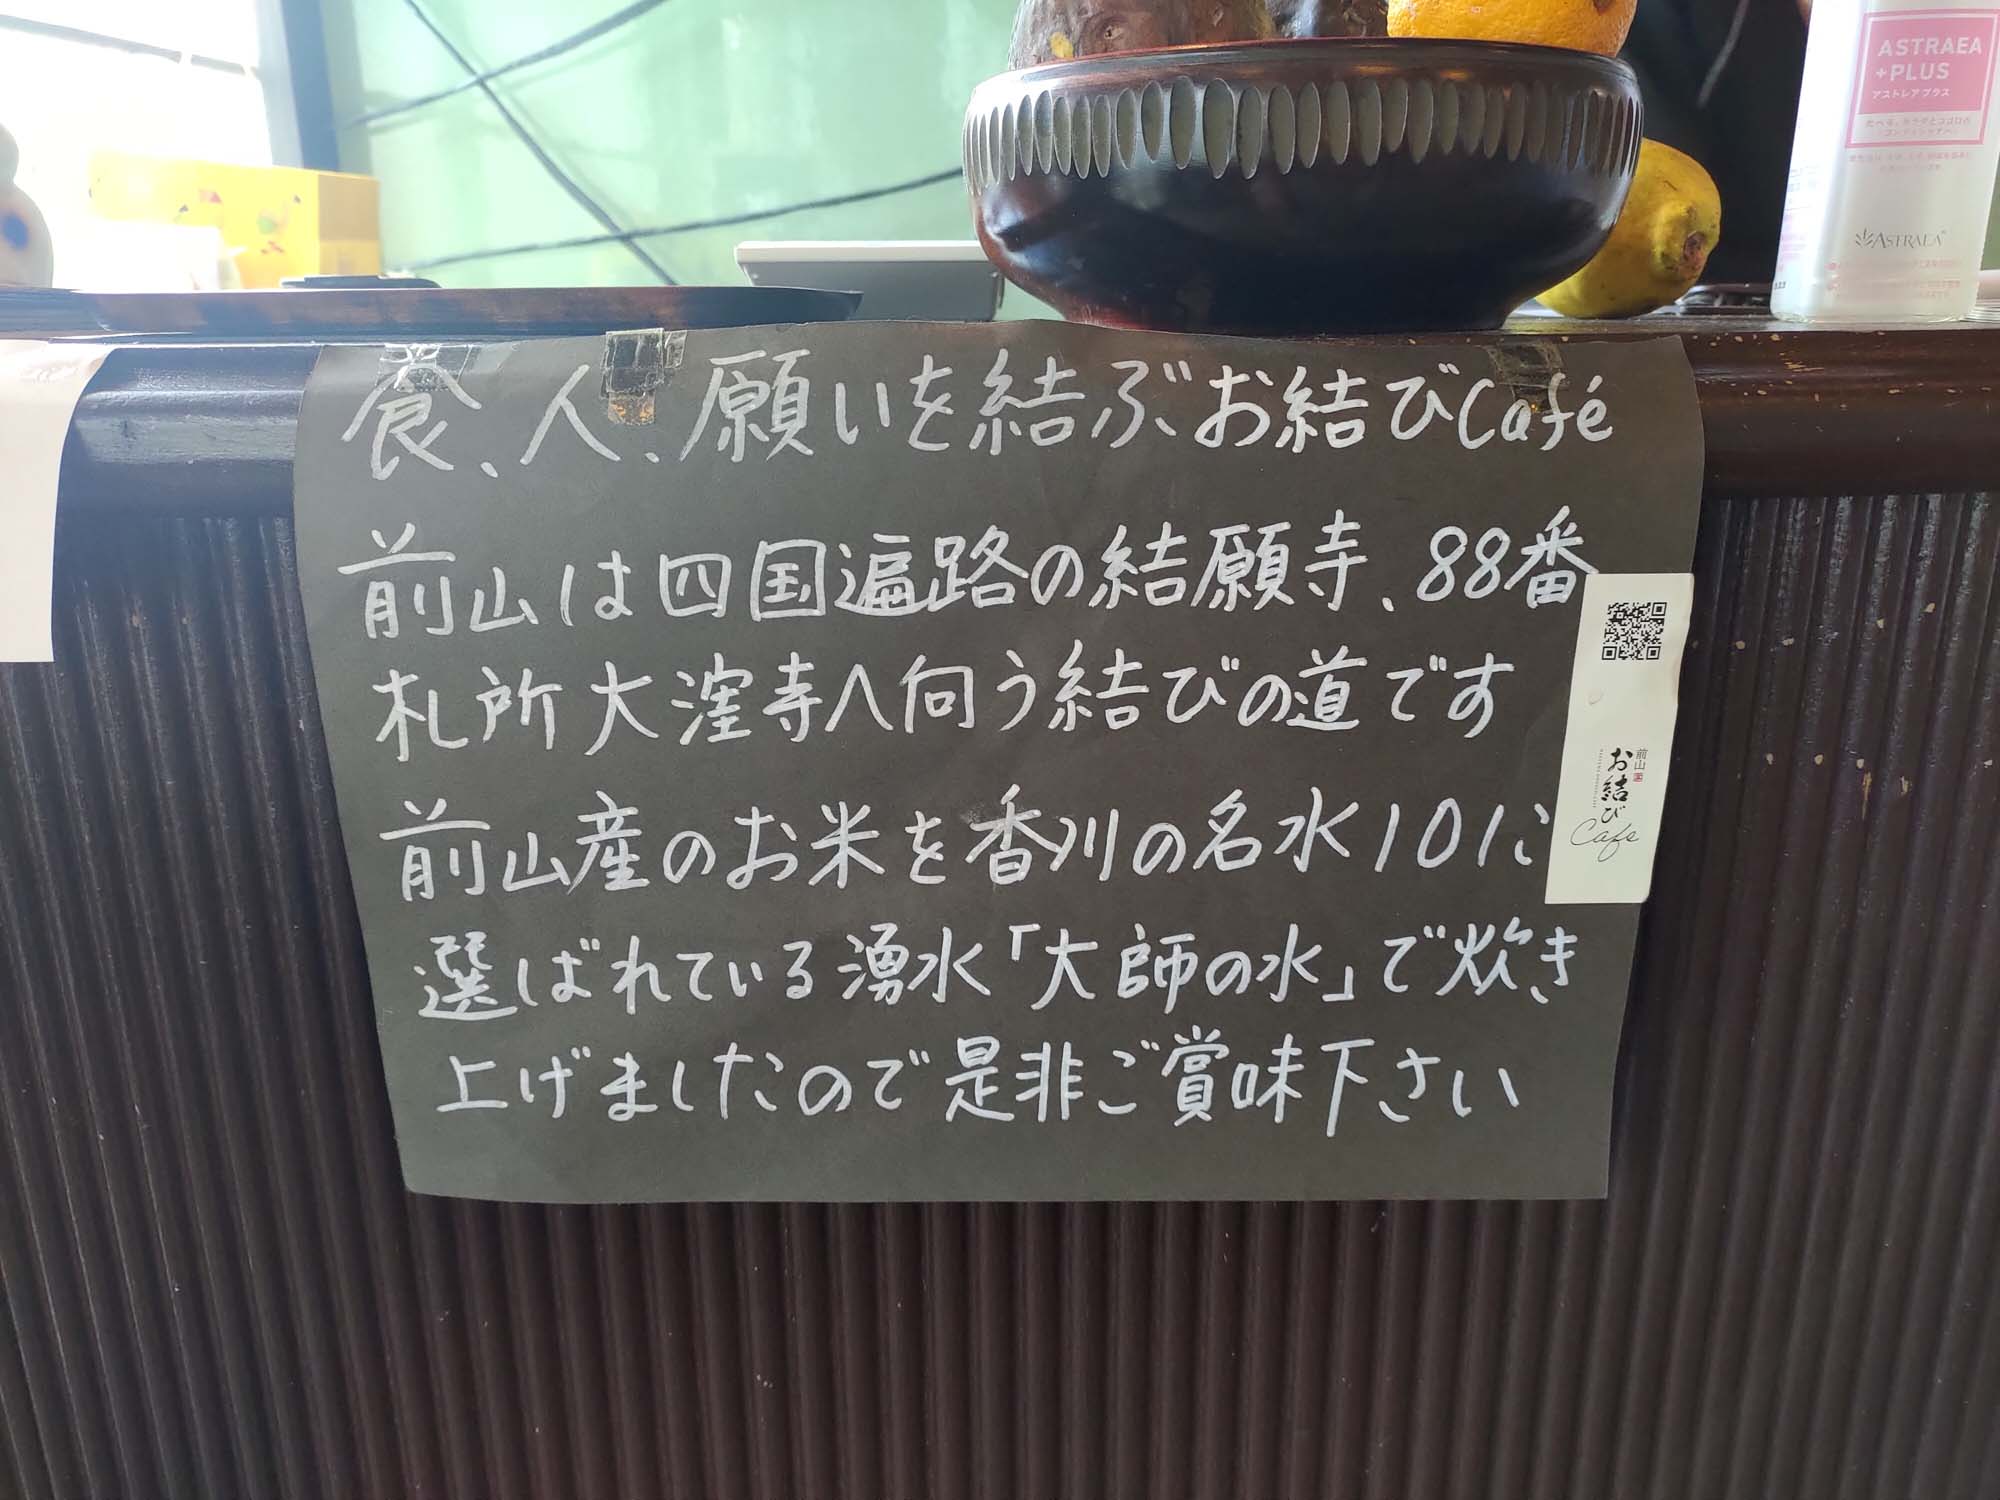 ASTRAEA
+PLUS
アストレアプラス
ASTRAEA
食、人、願いを結ぶお結びCafé
前山は四国遍路の結願寺、88番
札所大窪寺へ向う結びの道です
前山産のお米を香川の名水101に
選ばれている湧水「大師の水」で炊き
上げましたので是非ご賞味下さい
前山
お結び
Cafe